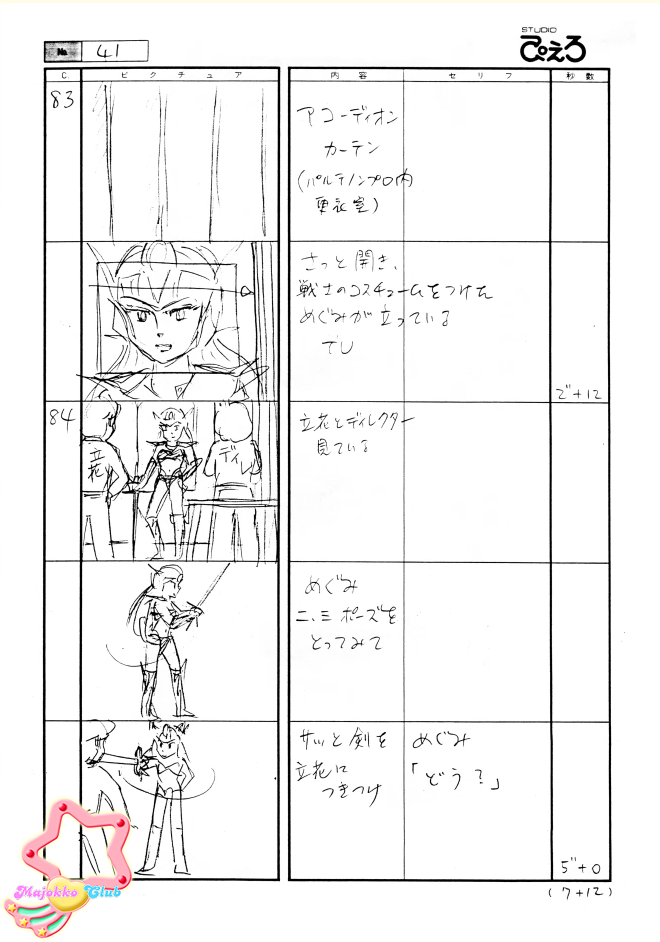 STUDIO
ぴえろ
No. 41
C. ピクチュア 内容 セリフ 秒数
83
アコーディオン
カーテン
(パルテノンプロ内
更衣室)
さっと開き、
戦士のコスチュームをつけた
めぐみが立っている
TU
2"+12
84
立花
ディレ
立花とディレクター
見ている
めぐみ
二、三ポーズを
とってみて
サッと剣を
立花に
つきつけ
めぐみ
「どう?」
5"+0
(7+12)
Majokko Club